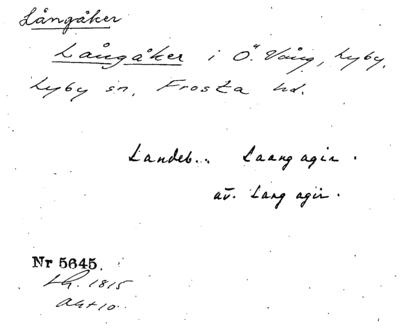 Långåker
Långåker i Ö. Vång, Lyby,
Lyby sn, Frosta hd.
Landeb.. Laang agir.
av. Lang agir.
Nr 5645.
1815
akt 10.